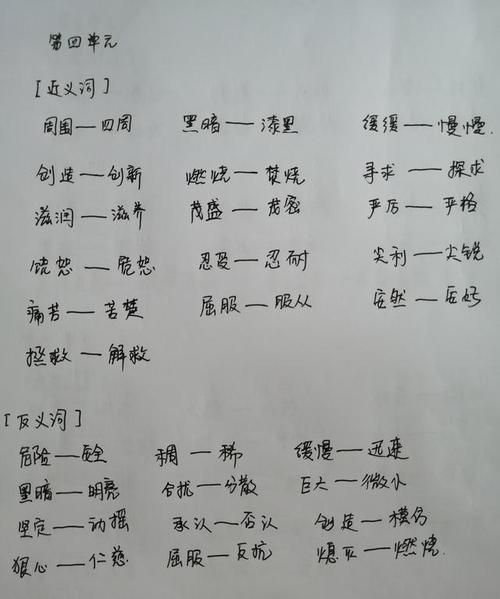 第四单元
[近义词]
周围—四周 黑暗—漆黑 缓缓—慢慢.
创造—创新 燃烧—焚烧 寻求—探求
滋润—滋养 茂盛—茂密 严厉—严格
饶恕—宽恕 忍受—忍耐 尖利—尖锐
痛苦—苦楚 屈服—服从 安然—安好
拯救—解救
[反义词]
危险—安全 稠—稀 缓慢—迅速
黑暗—明亮 合拢—分散 巨大—微小
坚定—动摇 承认—否认 创造—模仿
狠心—仁慈 屈服—反抗 熄灭—燃烧.